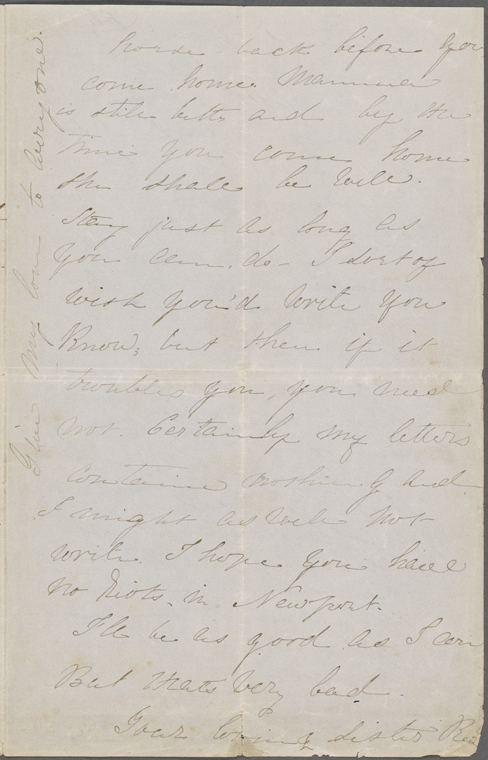 horse back before you
come home. Mamma
is still better and by the
time you come home
she shall be well.
Stay just as long as
you can. do - I sort of
wish you'd write you
know; but then if it
troubles you, you need
not. Certainly my letters
contain nothing and
I might as well not
write. I hope you have
no riots in Newport.
I'll be as good as I can
But thats very bad.
Your loving sister
Give my love to every one.